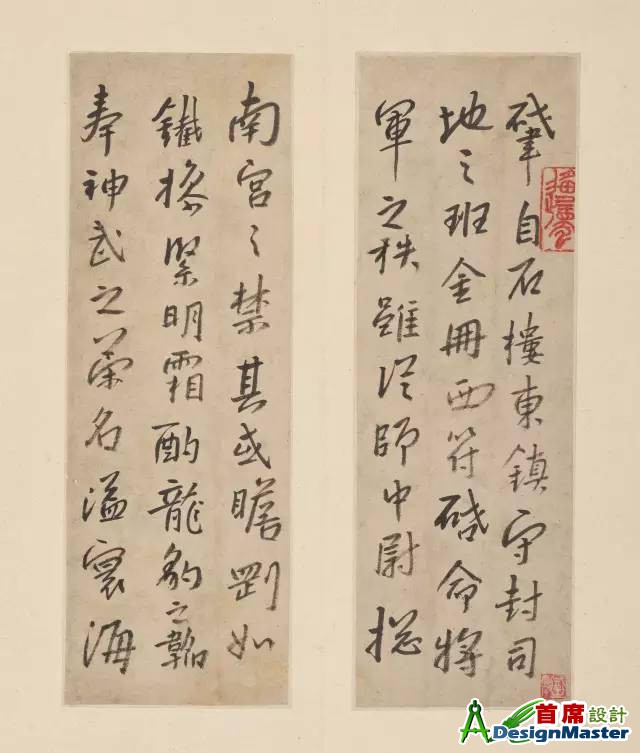 肇自石樓東鎮守封司
地之班金冊西符啟命將
軍之秩雖從師中尉揔
南宮之禁其或瞻劉如
鐵撩緊明霜酌龍豹之韜
奉神武之策名溢寰海
首席設計
DesignMaster